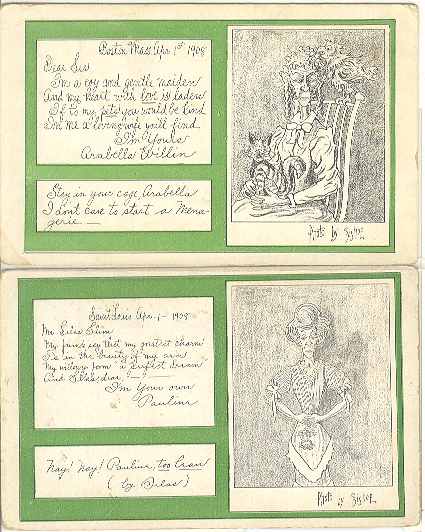 Boston Mass Apr. 1st 1908
Dear Sir
I'm a coy and gentle maiden
And my heart with love is laden
If to my pets you would be kind
In me a loving wife you'll find.
I'm Yours
Arabella Willin
Stay in your cage Arabella
I don't care to start a Mena-
gerie —
Photo by Sister
Saint Louis Apr. 1 - 1908
Mr Silas Slim
My friends say that my greatest charm
Is in the beauty of my arm
My form a
And Silas dear, I —
I'm Your own
Pauline
Nay! Nay! Pauline, too
(by Silas)
Photo by Sister